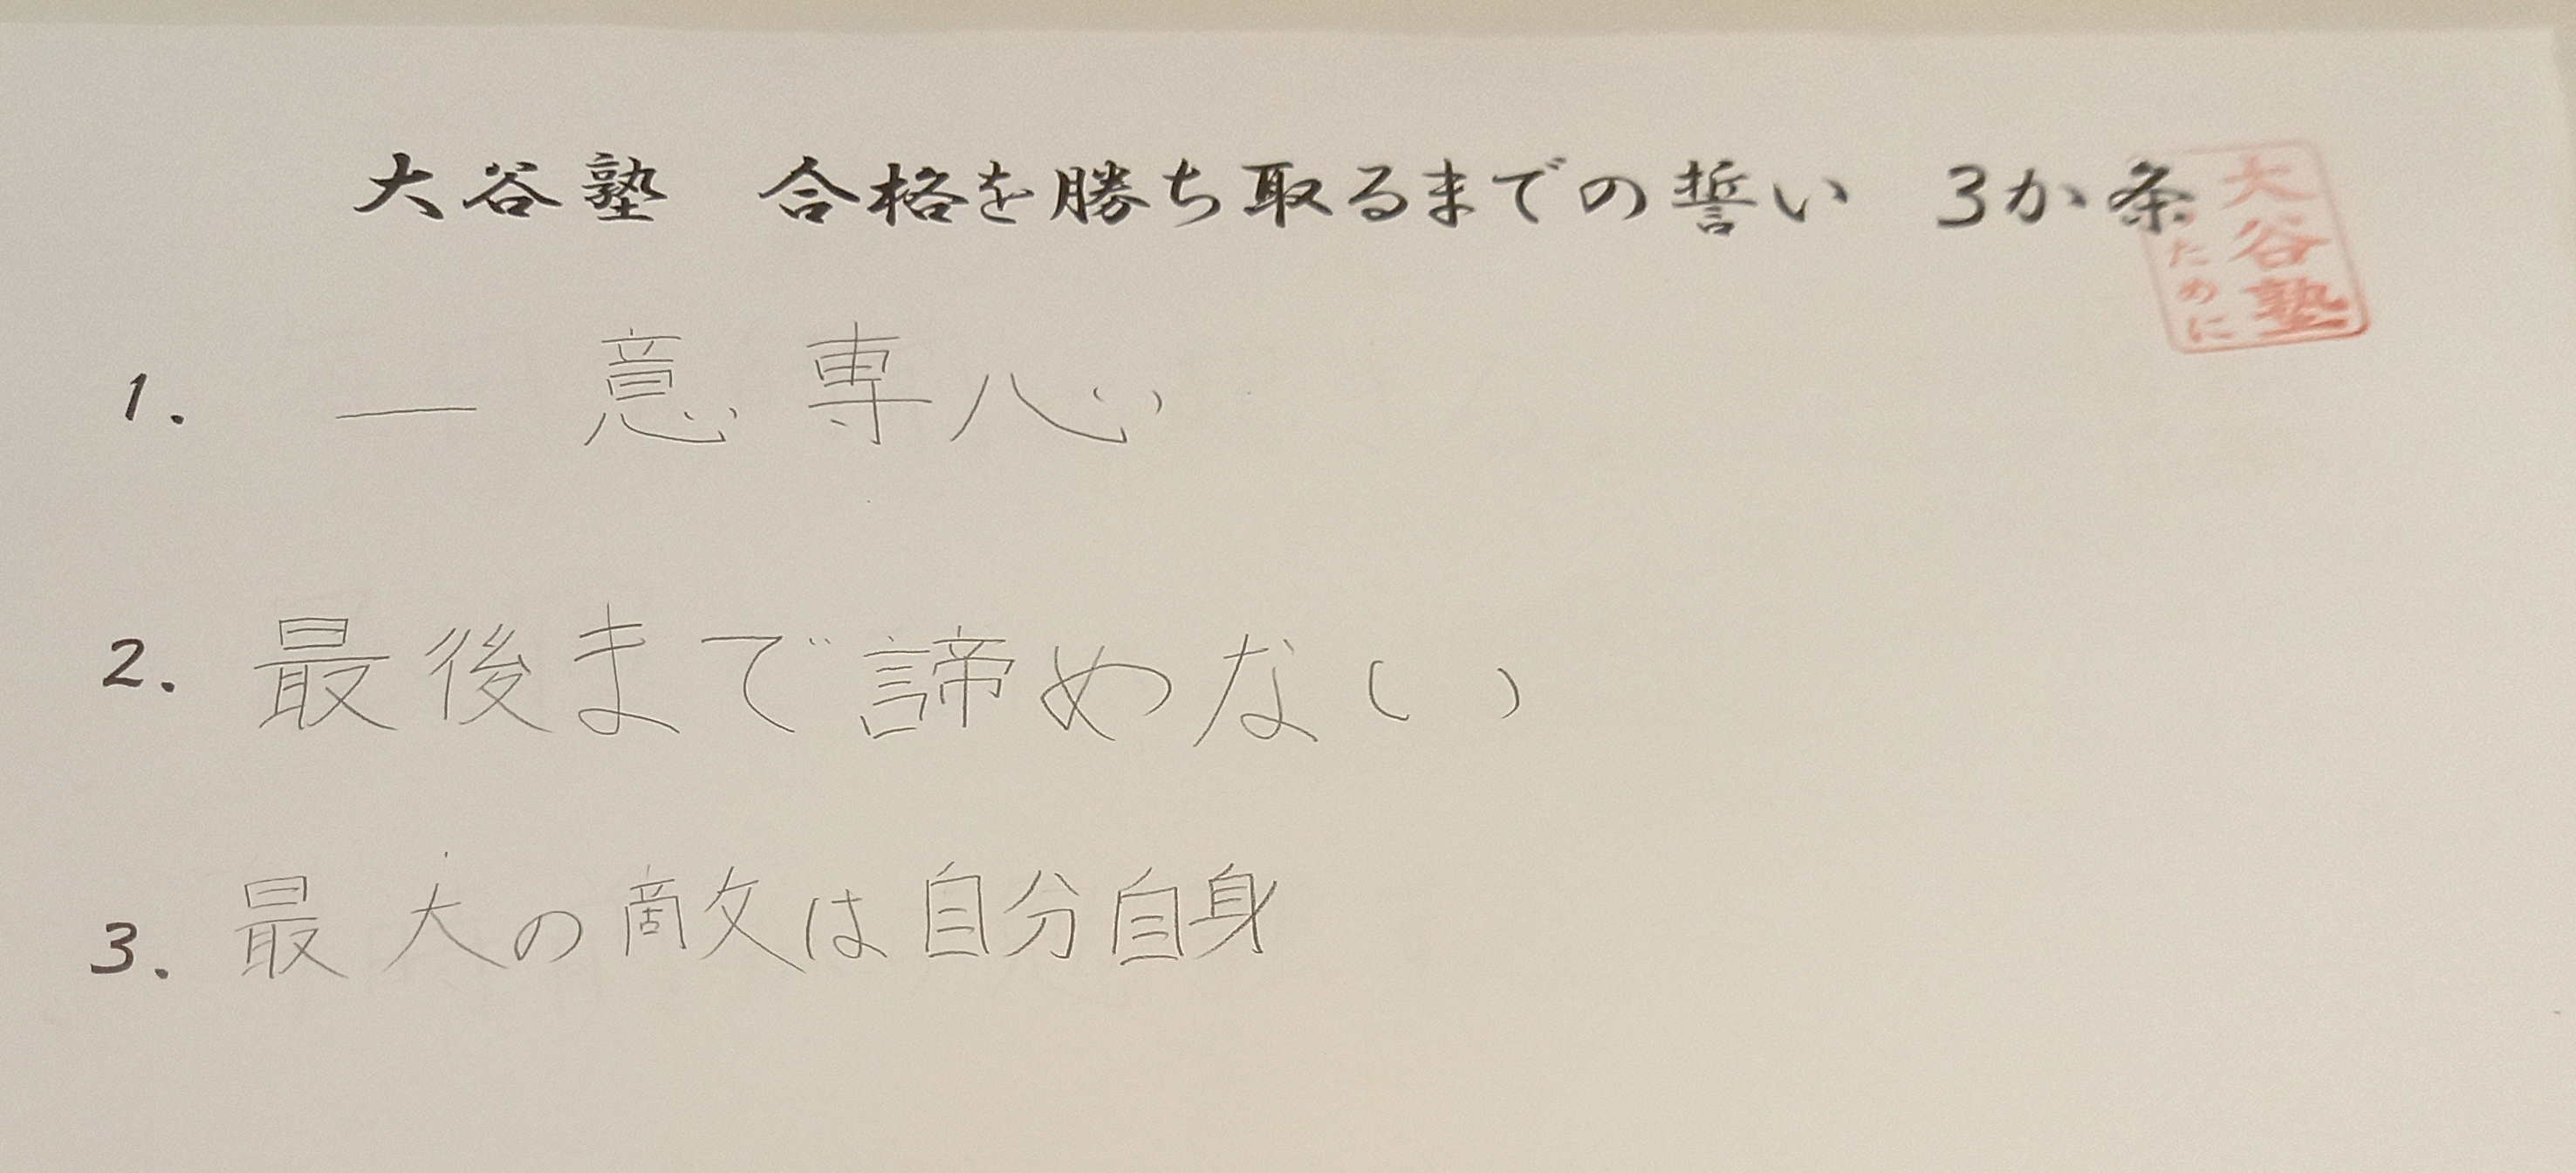 大谷塾　合格を勝ち取るまでの誓い　3か条
大谷塾
ために
1. 一意専心
2. 最後まで諦めない
3. 最大の敵は自分自身